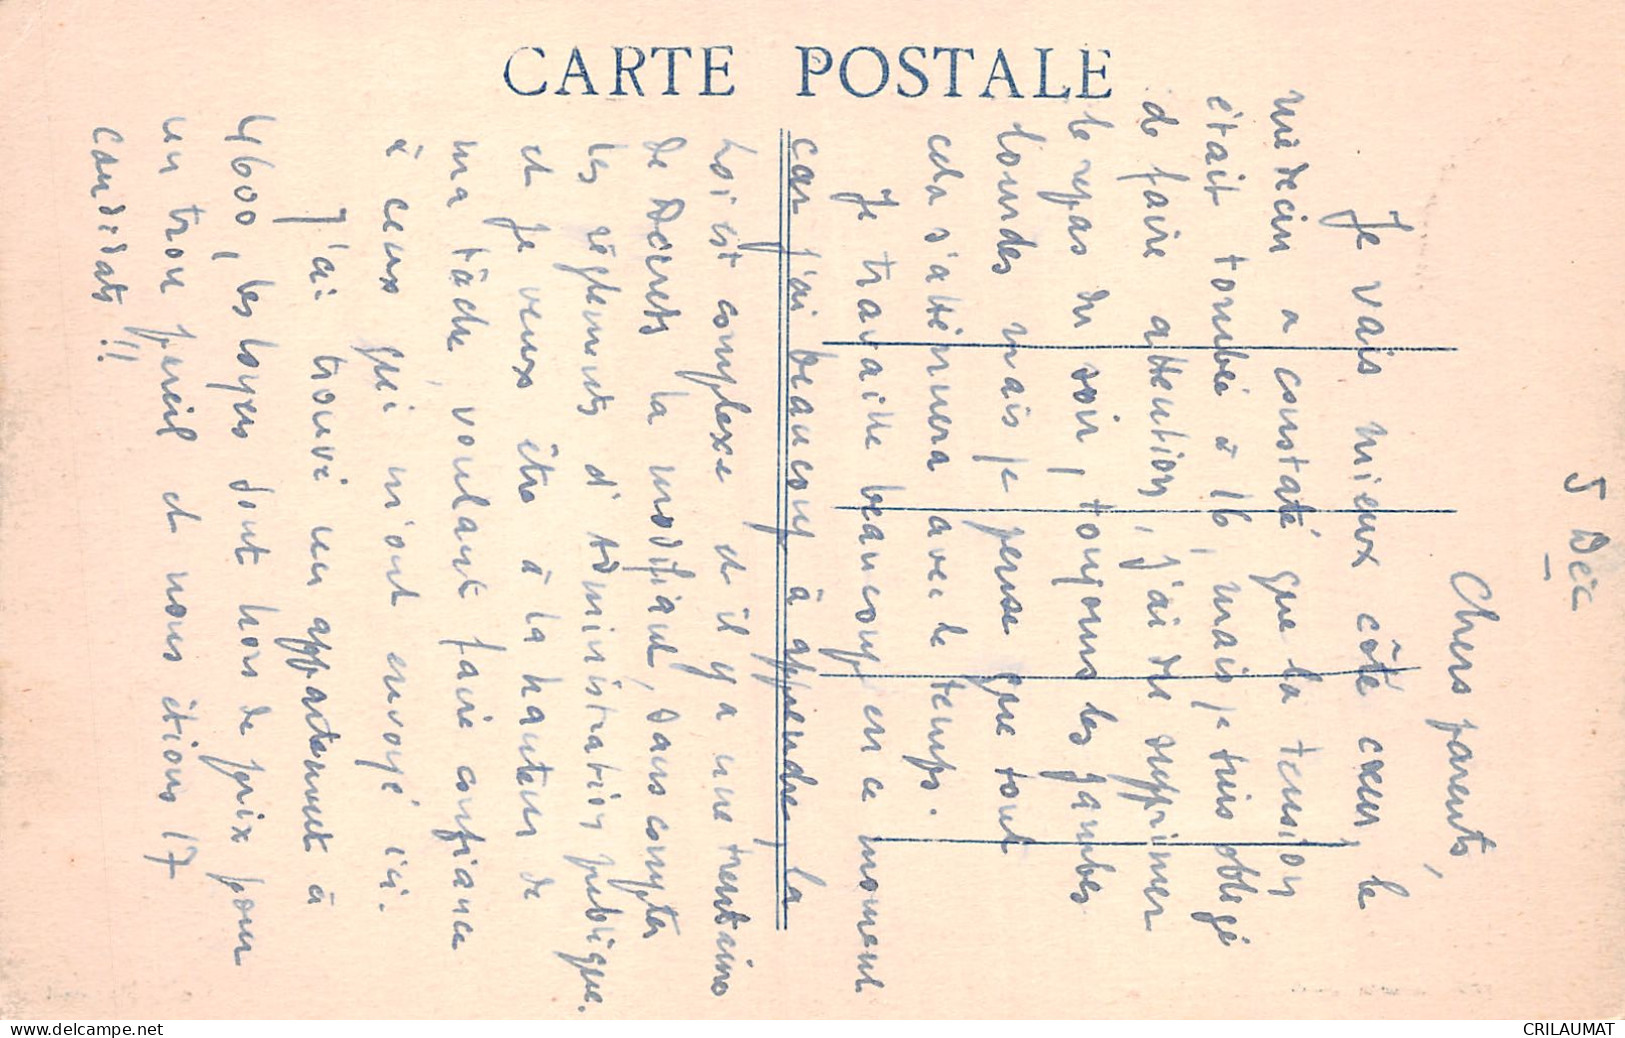 CARTE POSTALE
5 Déc
Chers parents,
Je vais mieux côté cœur, le
médecin a constaté que la tension
était tombée à 16, mais je suis obligé
de faire attention, j'ai dû supprimer
le repas du soir, toujours les jambes
lourdes mais je pense que tout
cela s'atténuera avec le temps.
Je travaille beaucoup en ce moment
car j'ai beaucoup à apprendre, la
Loi est complexe et il y a une trentaine
de Décrets la modifiant, sans compter
les règlements d'administration publique.
et je veux être à la hauteur de
ma tâche, voulant faire confiance
à ceux qui m'ont envoyé ici.
J'ai trouvé un appartement à
4600, les loyers sont hors de prix pour
un trou pareil et nous étions 17
candidats !!
CRILAUMAT